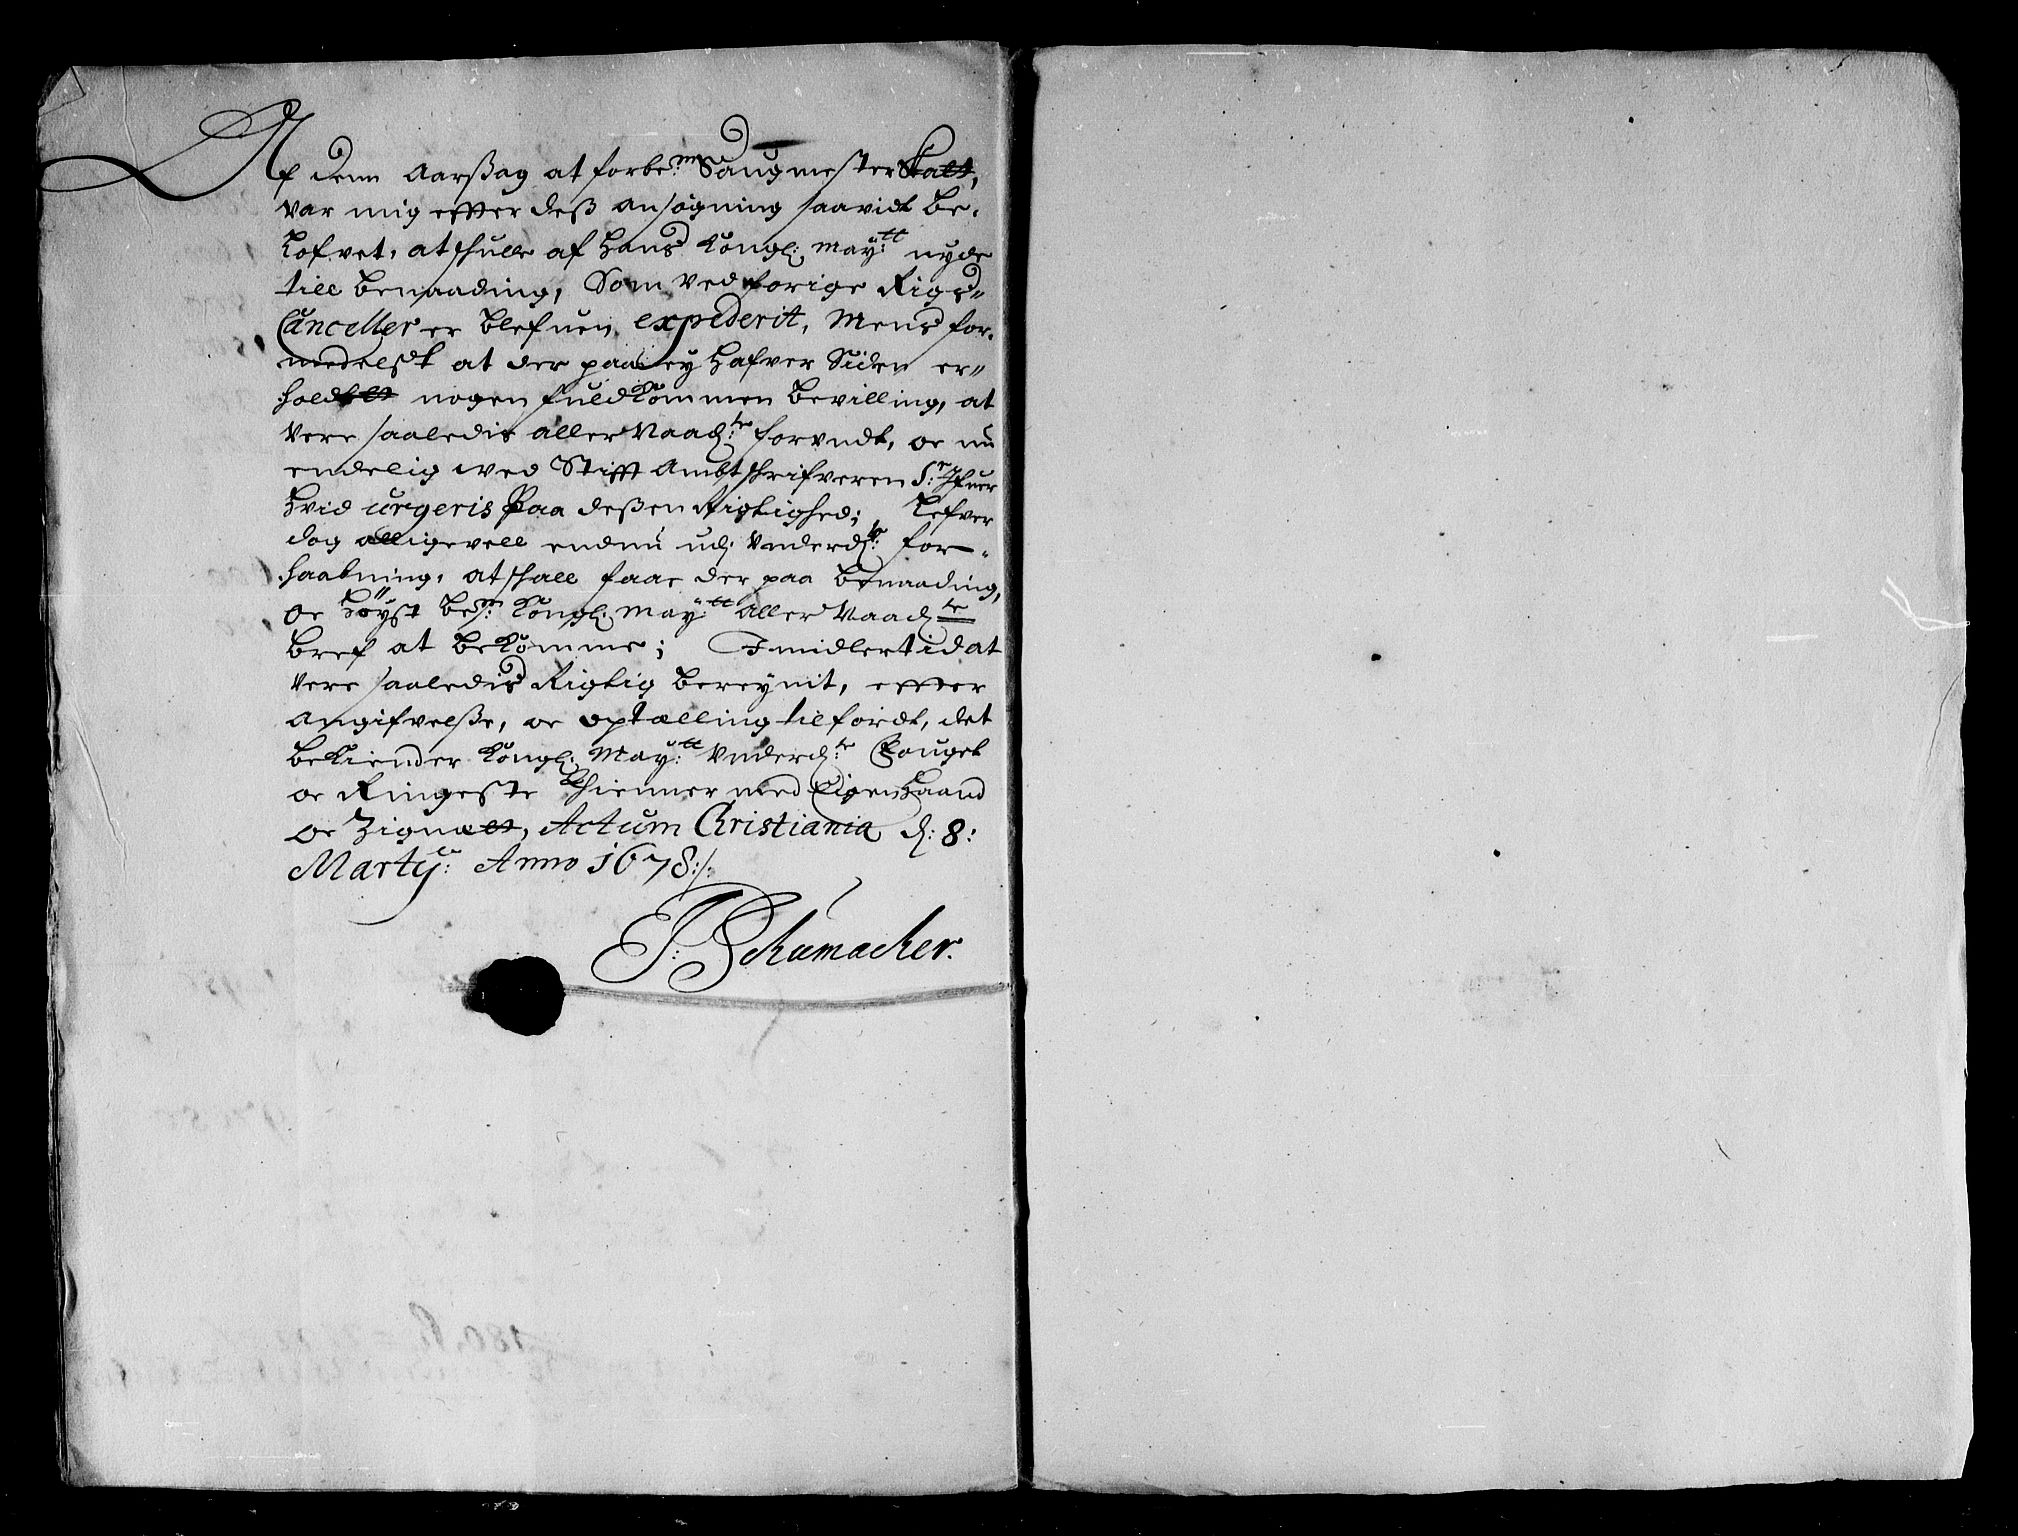 Af denn Aarsßag at forbe:^m Saugmester Skatt,
var mig effter deß ansøgning saavidt be-
lofvet, at skulle af Hans Kongl: May:^tt nyde
till benaading, Som ved forige Rigs=
Canceller er blefuen expederit, Mens for-
medelst at der paa ey hafver Siden er=
holdett nogen fuldkommen bevilling, at
vere saaledis aller Naad:^te forundt, oc nu
endelig wed Stifft Ambtschrifveren S:^r Ifuer
Hvid urgeris Paa deßen Rigtighed; lefver
dog alligevell endnu udj Underd:^te for-
haabning, at skall faae der paa benaading,
oc høyst be:^m Kongl: May:^tt aller Naad:^te
bref at bekomme; Imidlertid at
vere saaledis Rigtig bereynit, effter
angifvelße, oc optælling tilførdt, det
bekiender Kongl: May:^tt Underd:^te Fouget
oc Ringeste Thienner med Eigen Haand
oc Zignett, Actum Christiania d: 8:
Martij: Anno 1678:/:
P: Schumacher.